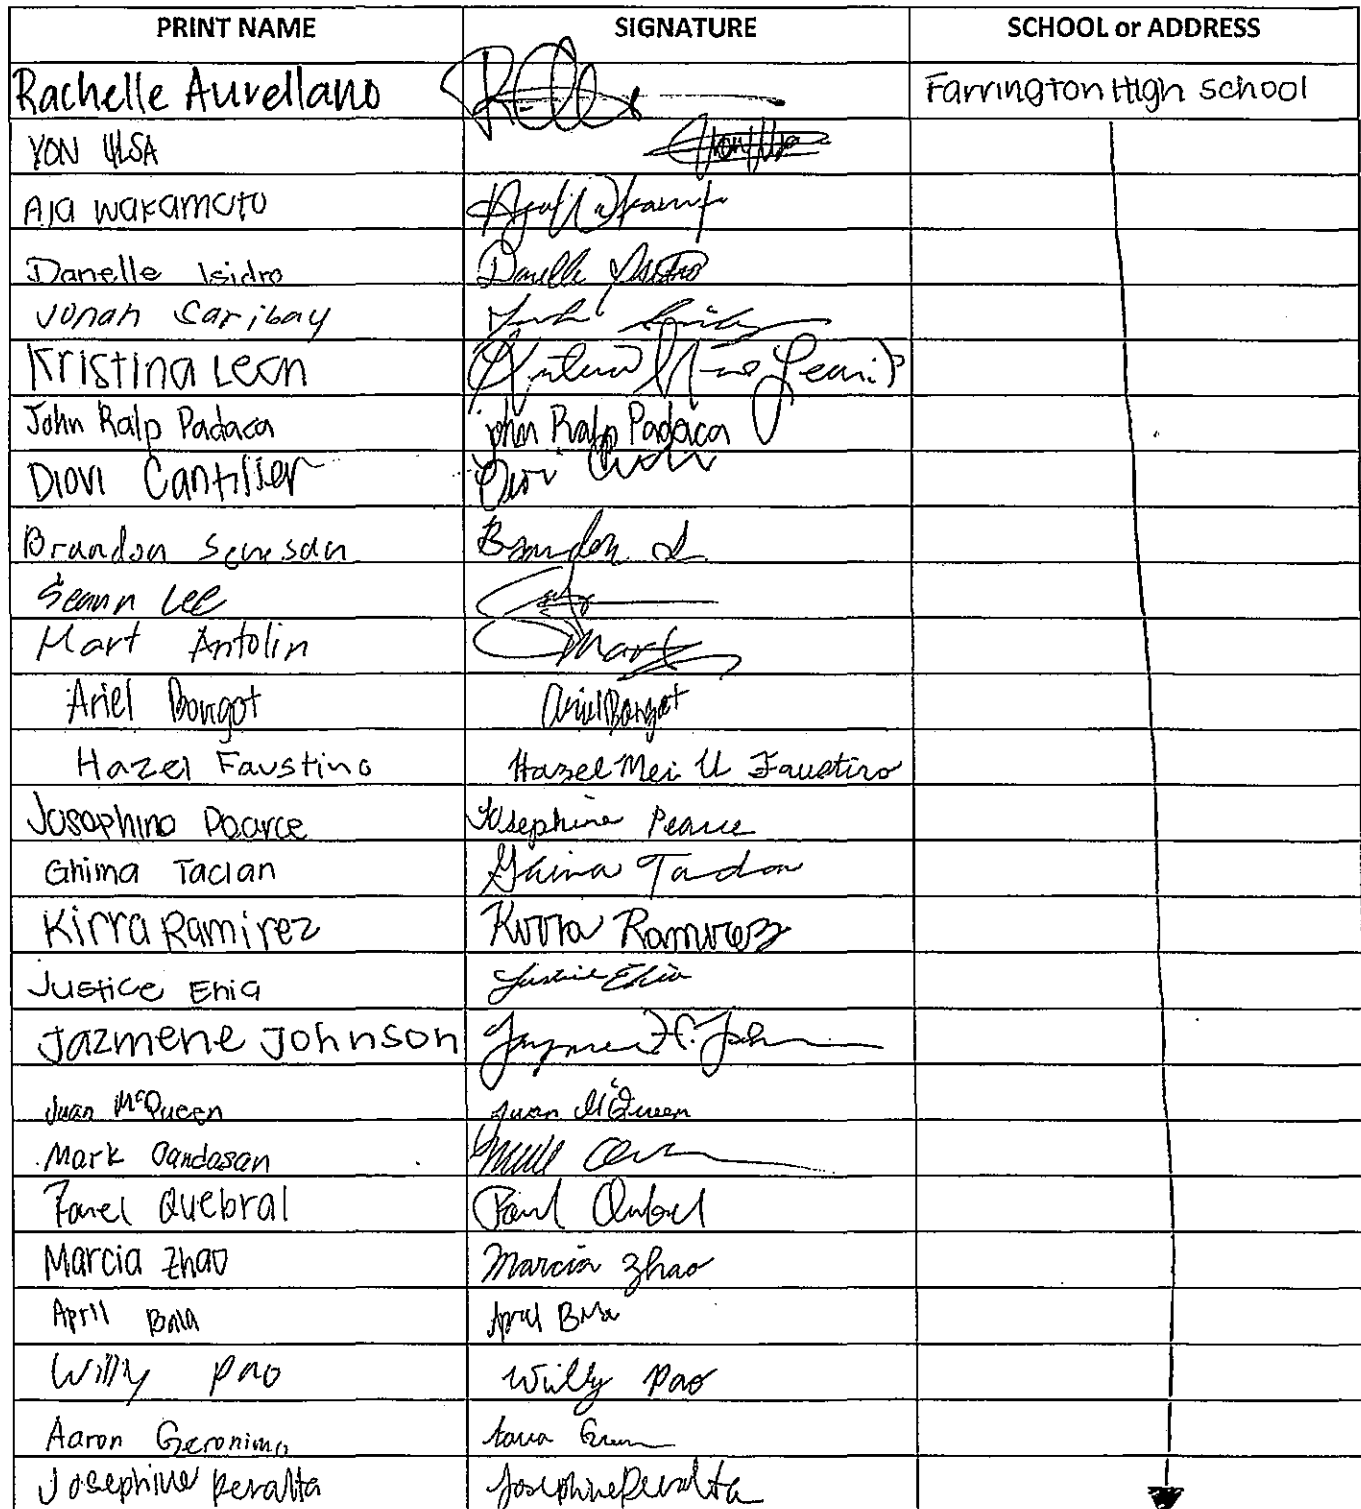 PRINT NAME SIGNATURE SCHOOL or ADDRESS
Rachelle Aurellano Farrington High School
YON ULSA
Aja Wakamoto
Danelle Isidro Danelle Isidro
Jonah Garibay
Kristina Leon
John Ralp Padaca John Ralp Padaca
Diovi Cantilier
Brandon Brandon
Seann Lee
Mart Antolin Mart
Ariel Bongot Ariel Bongot
Hazel Faustino Hazel Mei U Faustino
Josephine Pearce Josephine Pearce
Ghima Taclan
Kirra Ramirez Kirra Ramirez
Justice Ehia Justice Ehia
Jazmene Johnson
Juan McQueen Juan McQueen
Mark Oandasan
Farel Quebral
Marcia Zhao Marcia Zhao
April Bala April
Willy Pao Willy Pao
Aaron Geronimo
Josephine Peralta Josephine Peralta